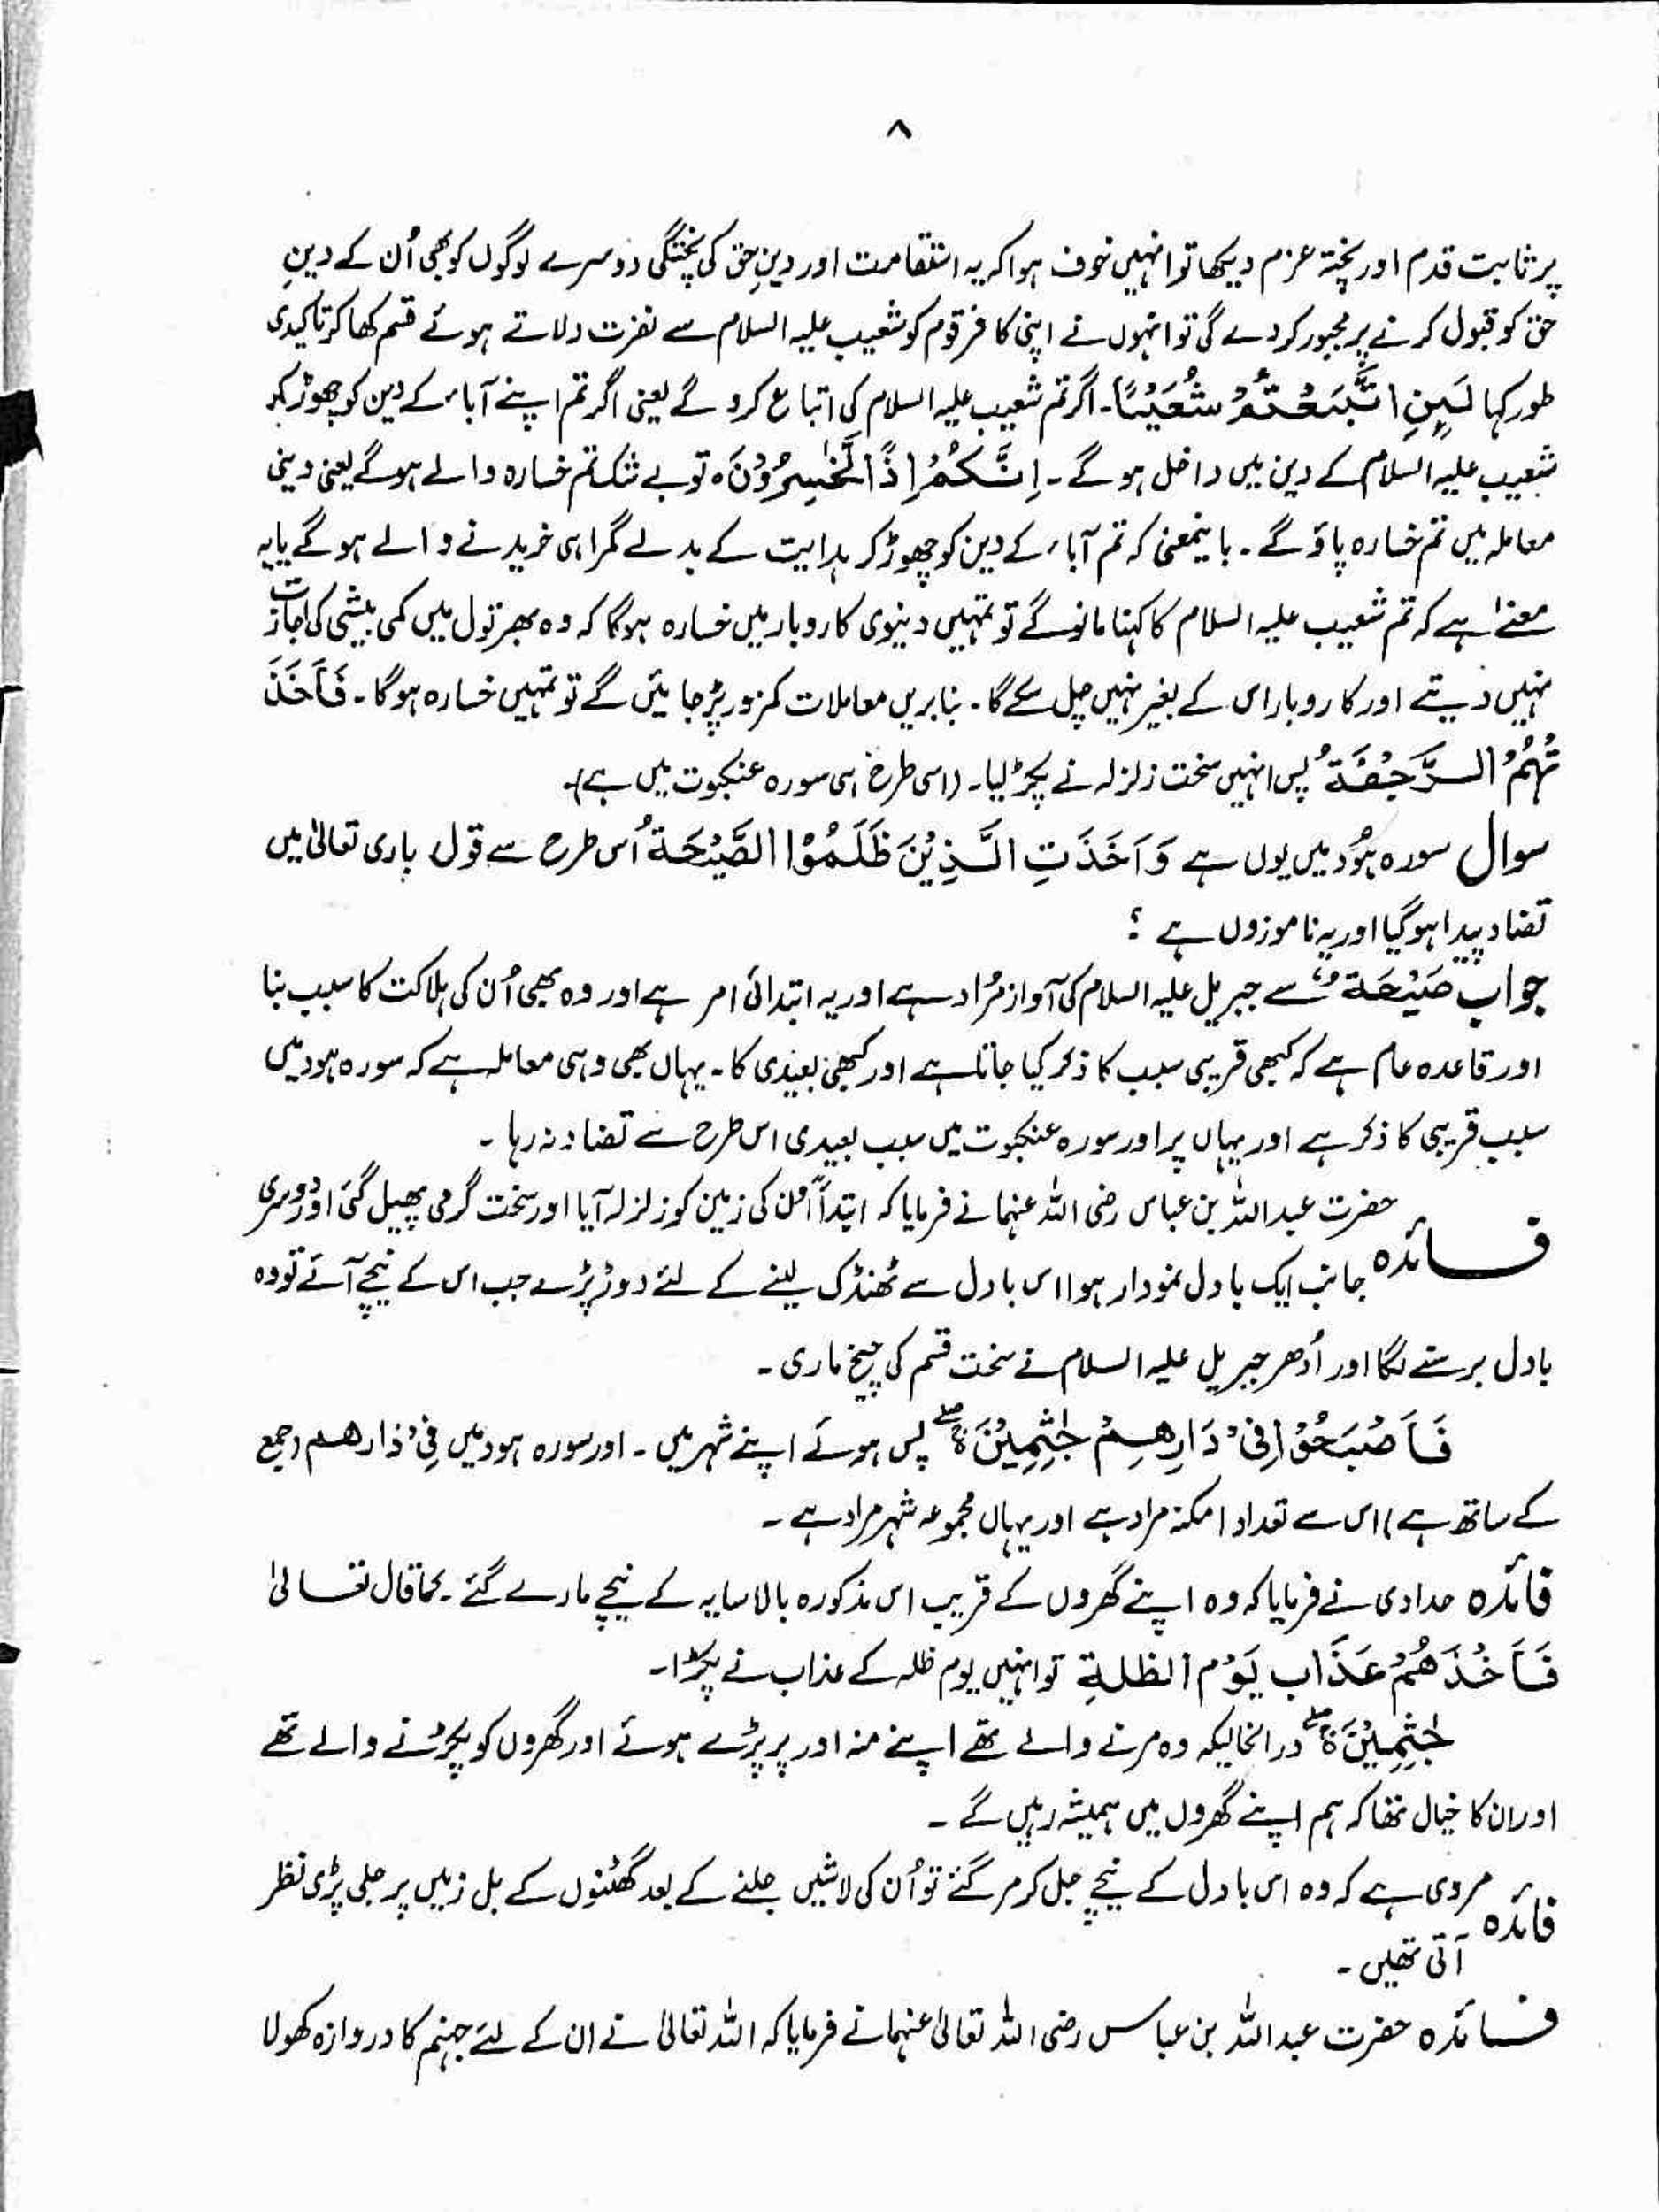 ۸
پر ثابت قدم اور پختہ عزم دیکھا تو انہیں خوف ہوا کہ یہ استقامت اور دینِ حق کی پختگی دوسرے لوگوں کو بھی اُن کے دینِ
حق کو قبول کرنے پر مجبور کر دے گی تو انہوں نے اپنی کافر قوم کو شعیب علیہ السلام سے نفرت دلاتے ہوئے قسم کھا کر تاکیدی
طور کہا لَـئِنِ اتَّبَعْتُمْ شُعَيْبًا۔ اگر تم شعیب علیہ السلام کی اتباع کرو گے یعنی اگر تم اپنے آباء کے دین کو چھوڑ کر
شعیب علیہ السلام کے دین میں داخل ہو گے۔ اِنَّـكُمْ اِذًا لَّخٰسِرُوْنَ ہ تو بے شک تم خسارہ والے ہو گے یعنی دینی
معاملہ میں تم خسارہ پاؤ گے۔ باینمعنی کہ تم آباء کے دین کو چھوڑ کر ہدایت کے بدلے گمراہی خریدنے والے ہو گے یا یہ
معنےٰ ہے کہ تم شعیب علیہ السلام کا کہنا مانو گے تو تمہیں دینوی کاروبار میں خسارہ ہوگا کہ وہ بھر تول میں کمی بیشی کی اجازت
نہیں دیتے اور کاروبار اس کے بغیر نہیں چل سکے گا۔ بنا بریں معاملات کمزور پڑ جائیں گے تو تمہیں خسارہ ہوگا۔ فَاَخَذَ
تْهُمُ الـرَّجْفَةُ پس انہیں سخت زلزلہ نے پکڑ لیا۔ (اسی طرح ہی سورہ عنکبوت میں ہے)۔
سوال سورہ ہُود میں یوں ہے وَاَخَذَتِ الَّـذِيْنَ ظَلَمُوْا الصَّيْحَةُ اُس طرح سے قول باری تعالیٰ میں
تضاد پیدا ہو گیا اور یہ ناموزوں ہے ؟
جواب صَيْحَةُ سے جبریل علیہ السلام کی آواز مُراد ہے اور یہ ابتدائی امر ہے اور وہ بھی اُن کی ہلاکت کا سبب بنا
اور قاعدہ عام ہے کہ کبھی قریبی سبب کا ذکر کیا جاتا ہے اور کبھی بعیدی کا۔ یہاں بھی وہی معاملہ ہے کہ سورہ ہود میں
سبب قریبی کا ذکر ہے اور یہاں پر اور سورہ عنکبوت میں سبب بعیدی اس طرح سے تضاد نہ رہا۔
فـــائدہ حضرت عبد اللہ بن عباس رضی اللہ عنہما نے فرمایا کہ ابتداً اُن کی زمین کو زلزلہ آیا اور سخت گرمی پھیل گئی اور دوسری
جانب ایک بادل نمودار ہوا اس بادل سے ٹھنڈک لینے کے لئے دوڑ پڑے جب اس کے نیچے آئے تو وہ
بادل برسنے لگا اور اُدھر جبریل علیہ السلام نے سخت قسم کی چیخ ماری۔
فَاَصْبَحُوْا فِیْ دَارِهِـمْ جٰثِمِيْنَ ہ پس ہوئے اپنے شہر میں۔ اور سورہ ہود میں فِیْ دَارِهـم (جمع
کے ساتھ ہے) اس سے تعداد امکنہ مراد ہے اور یہاں مجموعہ شہر مراد ہے۔
فائدہ حدادی نے فرمایا کہ وہ اپنے گھروں کے قریب اس مذکورہ بالا سایہ کے نیچے مارے گئے۔ کما قال تعـالیٰ
فَاَخَذَهُمْ عَذَاب يَوْم الظلةِ تو انہیں یوم ظلہ کے عذاب نے پکڑا۔
جٰثِمِيْنَ ہ درانحالیکہ وہ مرنے والے تھے اپنے منہ اور پر پڑے ہوئے اور گھروں کو پکڑنے والے تھے
اور ان کا خیال تھا کہ ہم اپنے گھروں میں ہمیشہ رہیں گے۔
فائدہ مروی ہے کہ وہ اس بادل کے نیچے جل کر مر گئے تو اُن کی لاشیں جلنے کے بعد گھٹنوں کے بل زمین پر جلی پڑی نظر
آتی تھیں۔
فـــائدہ حضرت عبد اللہ بن عباس رضی اللہ تعالیٰ عنہما نے فرمایا کہ اللہ تعالیٰ نے ان کے لئے جہنم کا دروازہ کھولا